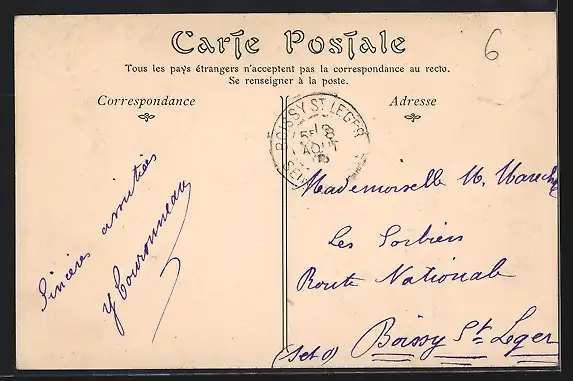 Carte Postale
6
Tous les pays étrangers n'acceptent pas la correspondance au recto.
Se renseigner à la poste.
Correspondance
Adresse
BOISSY ST LEGER
AOUT
Sincères amitiés
Y Touronneau
Mademoiselle M. Marech
Les Sorbiers
Route Nationale
Boissy St Leger
(Set O)